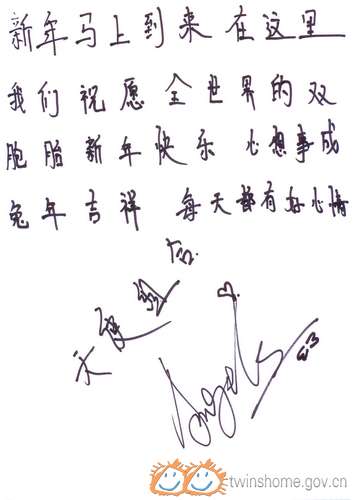 新年马上到来 在这里
我们祝愿全世界的双
胞胎新年快乐 心想事成
兔年吉祥 每天都有好心情
天使
Angels
twinshome.gov.cn